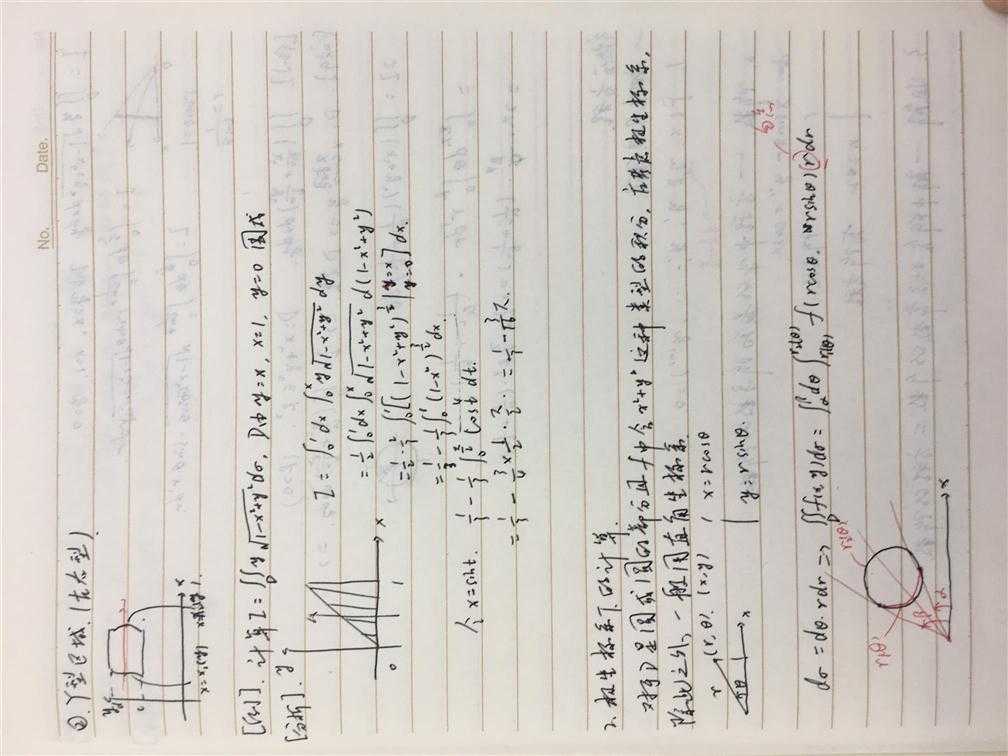 No. Date.
②. Y型区域. (先x后y)
y
x
0
x=x₁(y) x=x₂(y).
[例]. 计算 I=∬_D y√(1-x²+y²) dσ, D由 y=x, x=1, y=0 围成
[分析].
y
x
0 1
I = ∫₀¹dx∫₀ˣ y√(1-x²+y²) dy
= 1/2 ∫₀¹dx∫₀ˣ √(1-x²+y²) d(1-x²+y²)
= 1/2 · 2/3 ∫₀¹[(1-x²+y²)^(3/2) |_(y=0)^(y=x)] dx.
= 1/3 - 1/3 ∫₀¹ (1-x²)^(3/2) dx.
令 x=sint. 1/3 - 1/3 ∫₀^(π/2) cos⁴t dt.
= 1/3 - 1/3 · 3/4 × 1/2 · π/2 = 1/3 - π/16.
2. 极坐标系下的计算.
对于D是圆或圆的部分且f中含x²+y²这种类型的积分, 应考虑极坐标系.
除此之外, 一般用直角坐标系
r (r,θ). (x,y)
θ
x
{ x=rcosθ
y=rsinθ.
dσ=dθ·rdr ⇒ ∬_D f(x,y)dσ = ∫_α^β dθ ∫_(r₁(θ))^(r₂(θ)) f(rcosθ, rsinθ) r dr
r₁(θ) r₂(θ)
β α
x